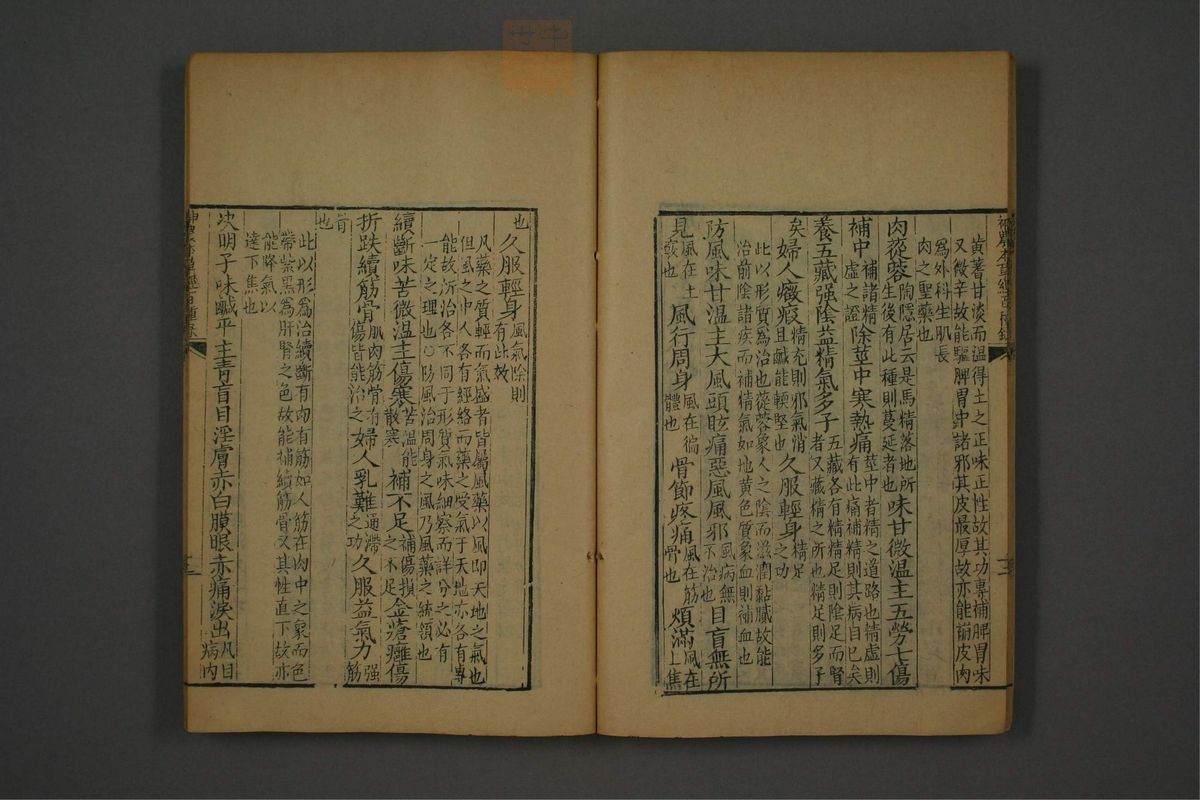 黄蓍甘淡而温得土之正味正性故其功專補脾胃味
又微辛故能驅脾胃中諸邪其皮最厚故亦能治皮肉
爲外科生肌長
肉之聖藥也
肉蓯蓉陶隱居云是馬精落地所生後有此種則蔓延者也味甘微温主五勞七傷
補中補諸精虛之證除莖中寒熱痛莖中者精之道路也精虛則有此痛補精則其病自已矣
養五藏强陰益精氣多子五藏各有精精足則陰足而腎者又藏精之所也精足則多子
矣婦人癥瘕精充則邪氣消且鹹能輭堅也久服輕身精足之功
此以形質爲治也蓯蓉象人之陰而滋潤黏膩故能
治前陰諸疾而補精氣如地黄色質象血則補血也
防風味甘温主大風頭眩痛惡風風邪風病無不治也目盲無所
見風在上竅也風行周身風在徧體也骨節疼痛風在筋骨也煩滿風在上焦
也久服輕身風氣除則有此效
凡藥之質輕而氣盛者皆屬風藥以風即天地之氣也
但風之中人各有經絡而藥之受氣于天地亦各有專
能故所治各不同于形質氣味細察而詳分之必有
一定之理也○防風治周身之風乃風藥之統領也
續斷味苦微温主傷寒苦温能散寒補不足補傷損之不足金瘡癰傷
折跌續筋骨肌肉筋骨有傷皆能治之婦人乳難通滯之功久服益氣力强筋
骨
也
此以形爲治續斷有肉有筋如人筋在肉中之象而色
帶紫黑爲肝腎之色故能補續筋骨又其性直下故亦
能降氣以
達下焦也
决明子味鹹平主青盲目淫膚赤白膜眼赤痛淚出凡目病内